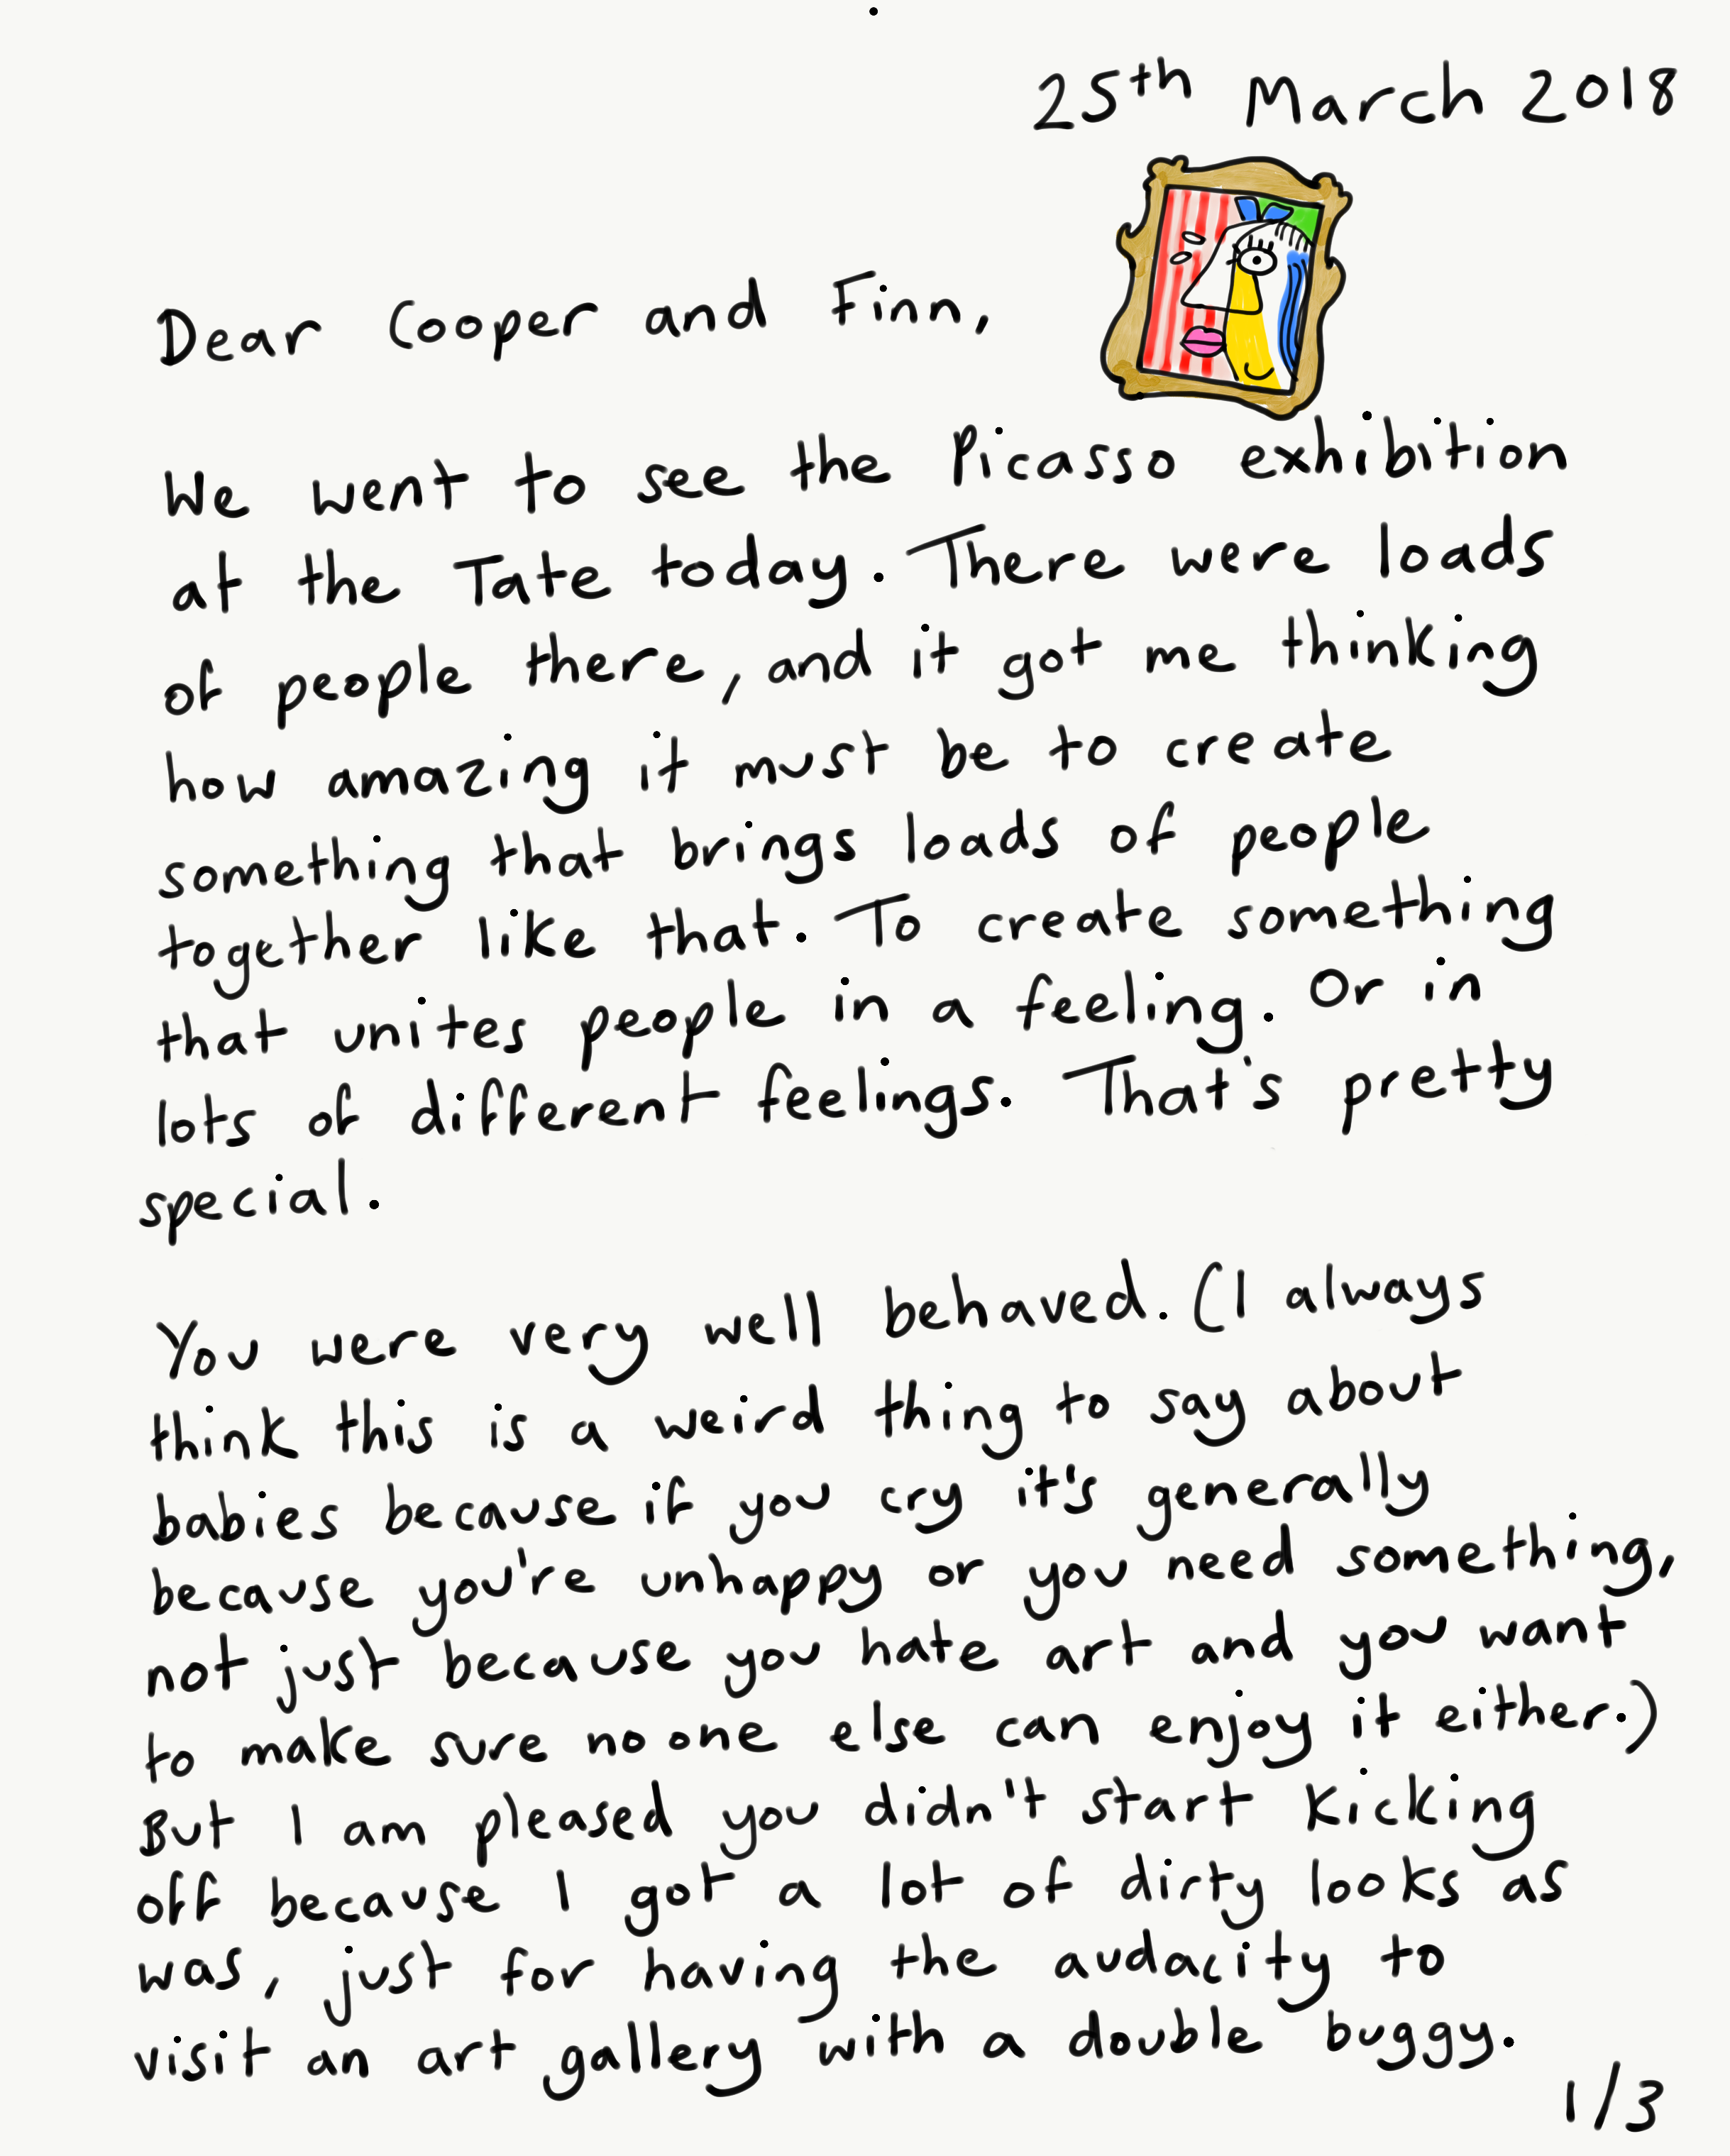 25th March 2018
Dear Cooper and Finn,
We went to see the Picasso exhibition
at the Tate today. There were loads
of people there, and it got me thinking
how amazing it must be to create
something that brings loads of people
together like that. To create something
that unites people in a feeling. Or in
lots of different feelings. That's pretty
special.
You were very well behaved. (I always
think this is a weird thing to say about
babies because if you cry it's generally
because you're unhappy or you need something,
not just because you hate art and you want
to make sure no one else can enjoy it either.)
But I am pleased you didn't start kicking
off because I got a lot of dirty looks as
was, just for having the audacity to
visit an art gallery with a double buggy.
1/3